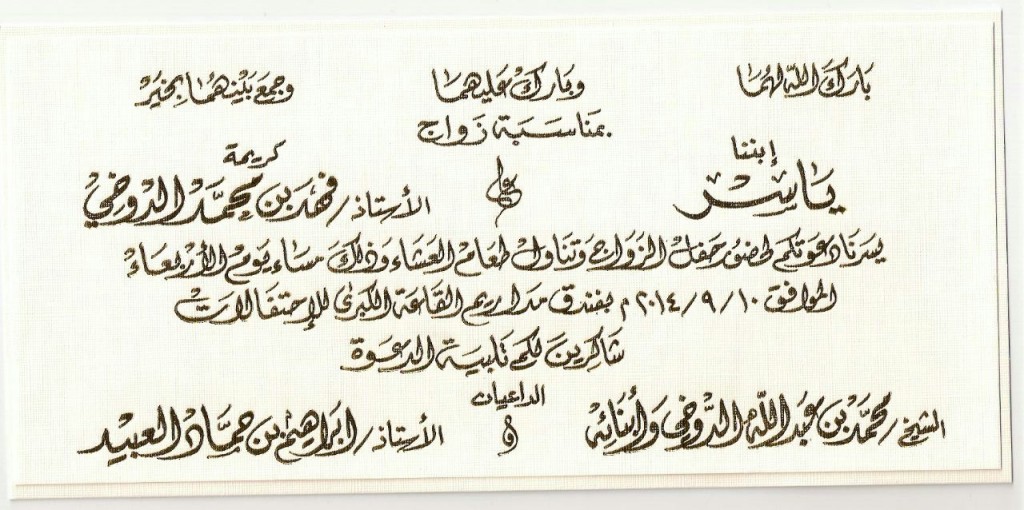 بارك الله لهما وبارك عليهما وجمع بينهما بخير
بمناسبة زواج
إبننا كريمة
ياسر على الأستاذ / فهد بن محمد الدوخي
يسرنا دعوتكم لحضور حفل الزواج وتناول طعام العشاء وذلك مساء يوم الأربعاء
الموافق ٢٠١٤/٩/١٠ م بفندق مداريم القاعة الكبرى للإحتفالات
شاكرين لكم تلبية الدعوة
الداعيان
الشيخ / محمد بن عبد الله الدوخي وأبنائه و الأستاذ / ابراهيم بن حماد العبيد